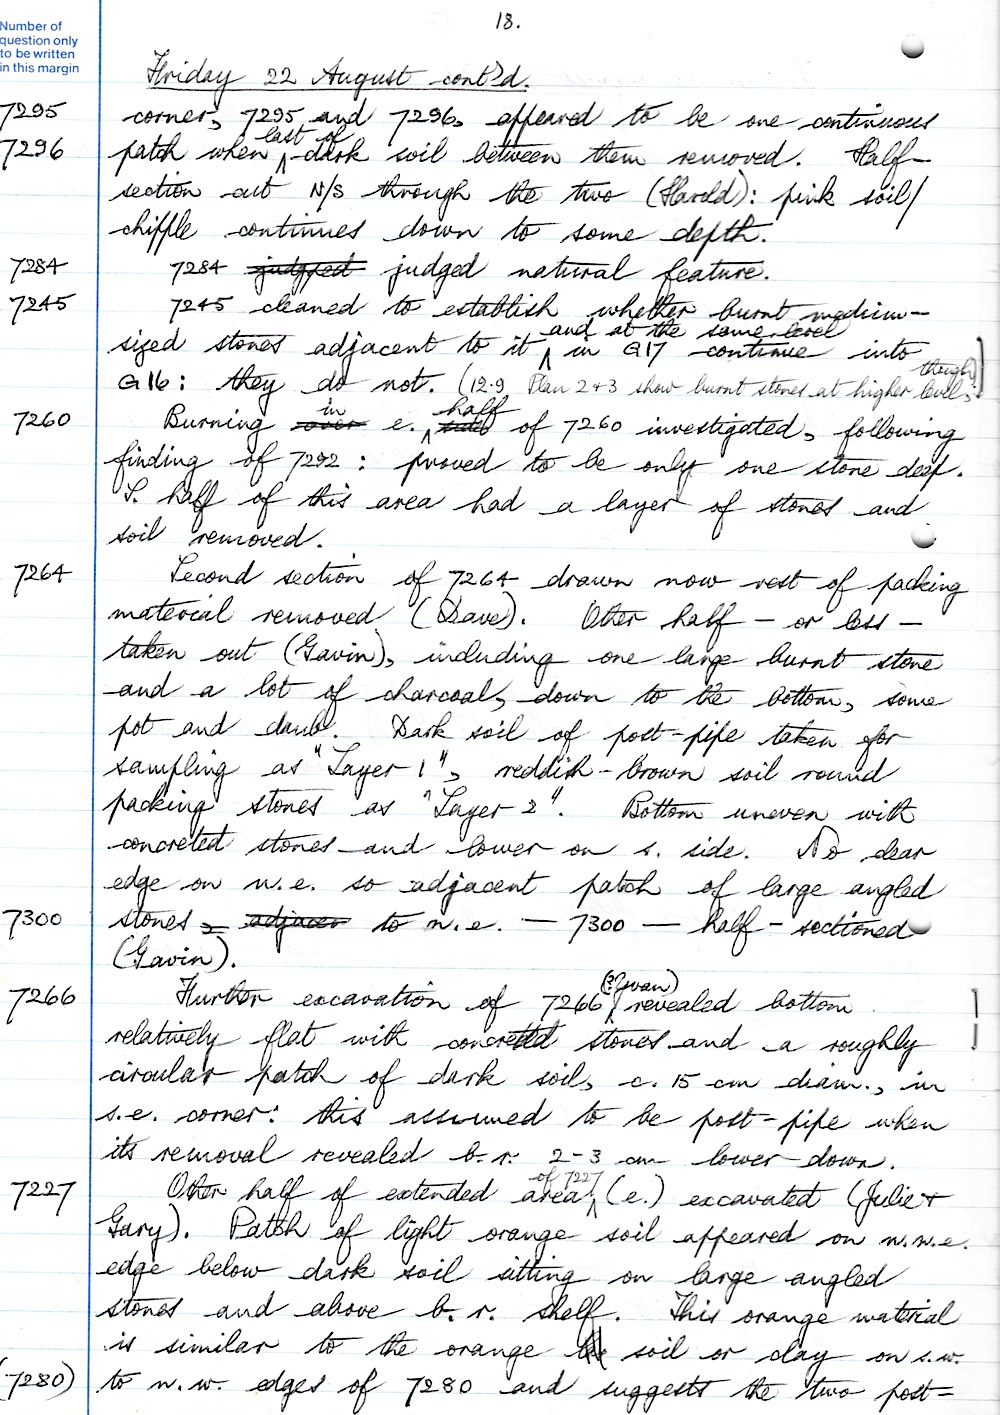 18.
Number of
question only
to be written
in this margin
Friday 22 August cont'd.
7295 corner, 7295 and 7296, appeared to be one continuous
7296 patch when last of dark soil between them removed. Half-
section cut N/S through the two (Harold): pink soil/
chiffle continues down to some depth.
7284 7284 judgped judged natural feature.
7245 7245 cleaned to establish whether burnt medium-
sized stones adjacent to it and at the same level in G17 continue into
G16: they do not. (12.9 Plan 2+3 show burnt stones at higher level, though)
7260 Burning over in e. side half of 7260 investigated, following
finding of 7292: proved to be only one stone deep.
S. half of this area had a layer of stones and
soil removed.
7264 Second section of 7264 drawn now rest of packing
material removed (Dave). Other half - or less -
taken out (Gavin), including one large burnt stone
and a lot of charcoal, down to the bottom, some
pot and daub. Dark soil of post-pipe taken for
sampling as "Layer 1", reddish-brown soil round
packing stones as "Layer 2". Bottom uneven with
concreted stones and lower on s. side. No clear
edge on n.e. so adjacent patch of large angled
7300 stones adjacen to n.e. - 7300 - half-sectioned
(Gavin).
7266 Further excavation of 7266 (?Ewan) revealed bottom
relatively flat with concreted stones and a roughly
circular patch of dark soil, c. 15 cm diam., in
s.e. corner: this assumed to be post-pipe when
its removal revealed b.r. 2-3 cm lower down.
7227 Other half of extended area of 7227 (e.) excavated (Julie +
Gary). Patch of light orange soil appeared on n.n.e.
edge below dark soil sitting on large angled
stones and above b.r. shelf. This orange material
is similar to the orange soil or clay on s.w.
(7280) to n.w. edges of 7280 and suggests the two post-